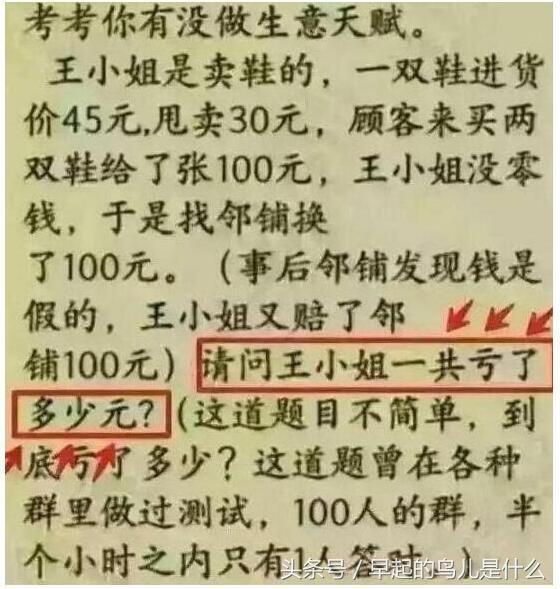 考考你有没做生意天赋。
王小姐是卖鞋的，一双鞋进货
价45元,甩卖30元，顾客来买两
双鞋给了张100元，王小姐没零
钱，于是找邻铺换
了100元。（事后邻铺发现钱是
假的，王小姐又赔了邻
铺100元）请问王小姐一共亏了
多少元？（这道题目不简单，到
底亏了多少？这道题曾在各种
群里做过测试，100人的群，半
个小时之内只有1人答对
头条号/早起的鸟儿是什么